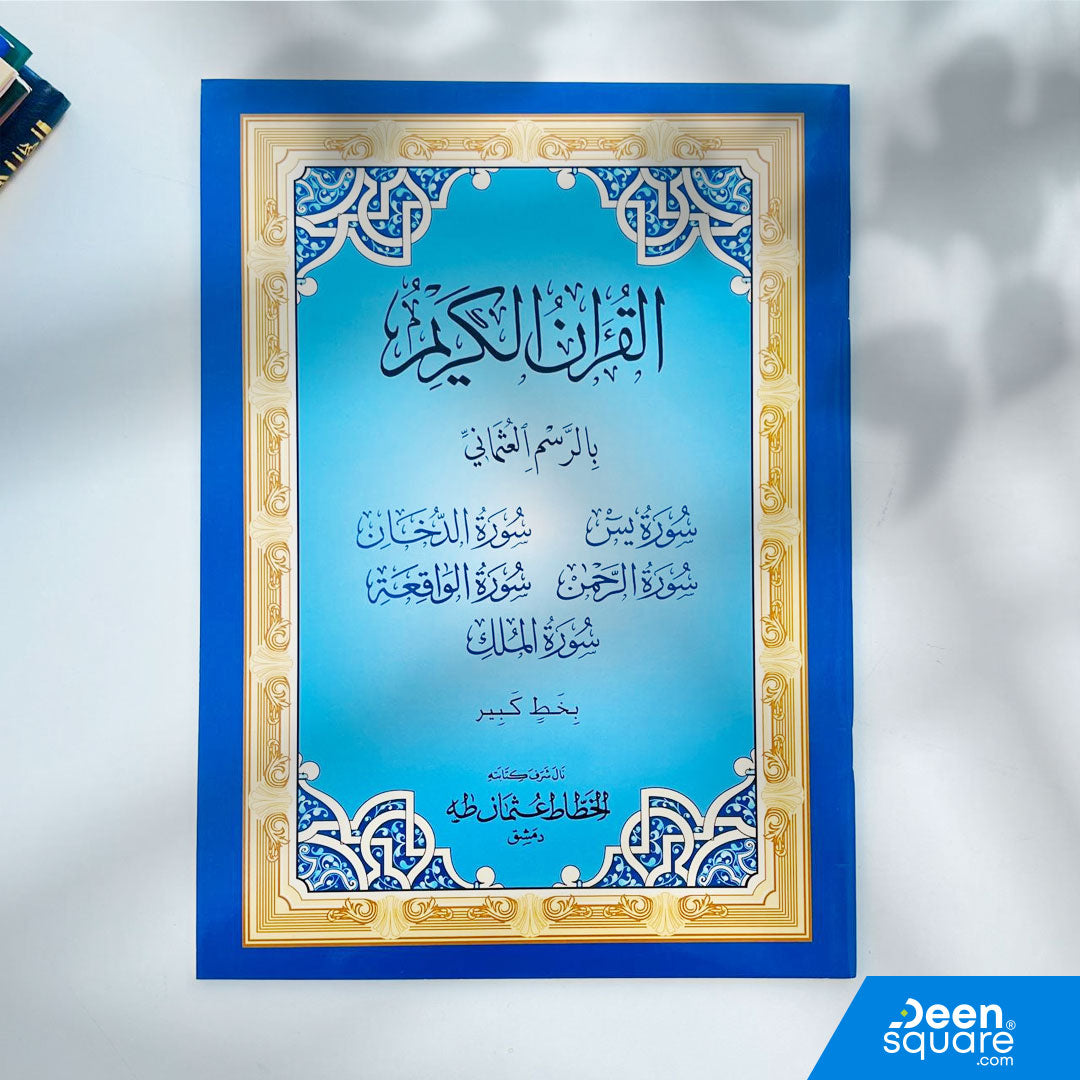 القُرْآنُ الكَرِيْمُ
بِالرَّسْمِ العُثْمَانِيِّ
سُورَةُ يسْ سُورَةُ الدُّخَانِ
سُورَةُ الرَّحْمٰنِ سُورَةُ الوَاقِعَةِ
سُورَةُ المُلْكِ
بِخَطٍ كَبِير
نَالَ شَرَفَ كِتَابَتِهِ
الخَطَّاط عُثْمَان طٰه
دِمَشق
Deen
square®
.com